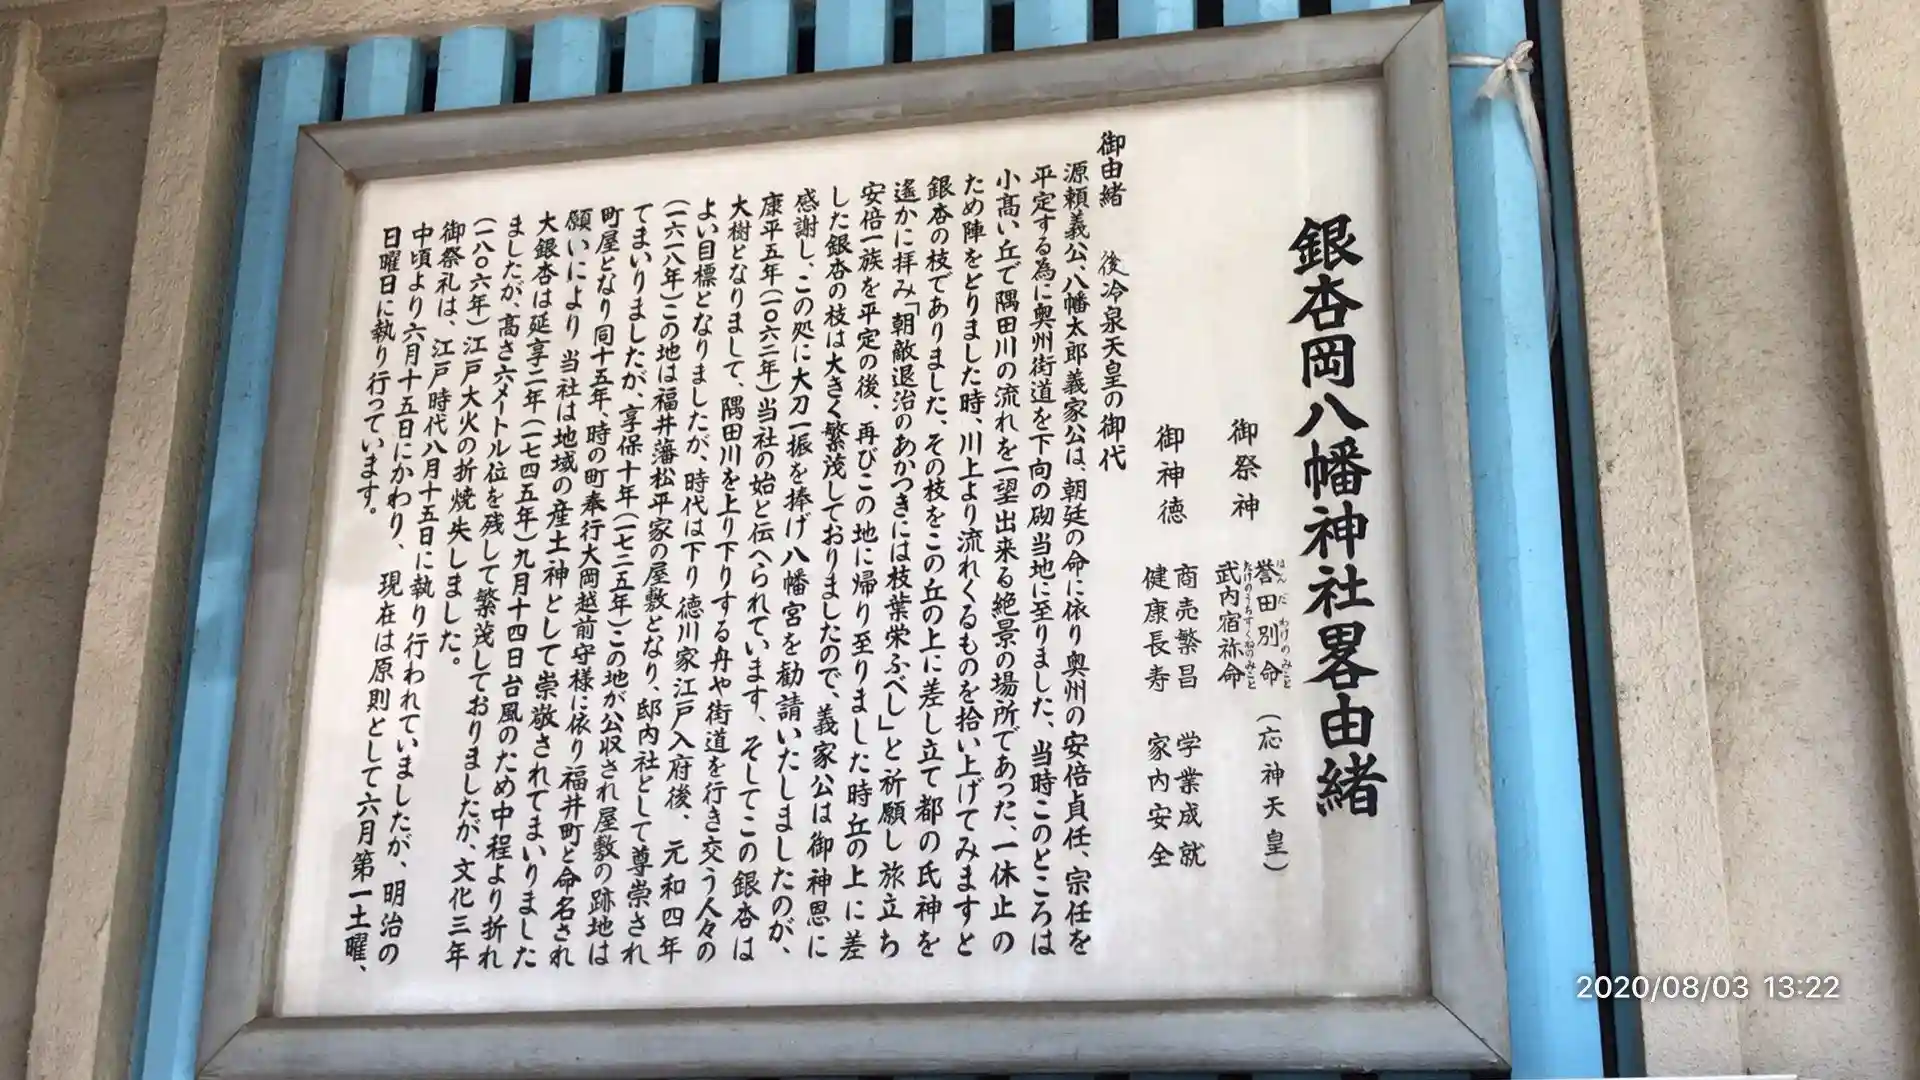 銀杏岡八幡神社畧由緒
御祭神 誉田別命（応神天皇）
ほんだわけのみこと
武内宿祢命
たけのうちすくねのみこと
御神徳 商売繁昌 学業成就
健康長寿 家内安全
御由緒 後冷泉天皇の御代
源頼義公、八幡太郎義家公は、朝廷の命に依り奥州の安倍貞任、宗任を
平定する為に奥州街道を下向の砌当地に至りました、当時このところは
小高い丘で隅田川の流れを一望出来る絶景の場所であった、一休止の
ため陣をとりました時、川上より流れくるものを拾い上げてみますと
銀杏の枝でありました、その枝をこの丘の上に差し立て都の氏神を
遙かに拝み「朝敵退治のあかつきには枝葉栄ふべし」と祈願し旅立ち
安倍一族を平定の後、再びこの地に帰り至りました時丘の上に差
した銀杏の枝は大きく繁茂しておりましたので、義家公は御神恩に
感謝し、この処に大刀一振を捧げ八幡宮を勧請いたしましたのが、
康平五年（一〇六二年）当社の始と伝へられています、そしてこの銀杏は
大樹となりまして、隅田川を上り下りする舟や街道を行き交う人々の
よい目標となりましたが、時代は下り徳川家江戸入府後、元和四年
（一六一八年）この地は福井藩松平家の屋敷となり、邸内社として尊崇され
てまいりましたが、享保十年（一七二五年）この地が公収され屋敷の跡地は
町屋となり同十五年、時の町奉行大岡越前守様に依り福井町と命名され
願いにより当社は地域の産土神として崇敬されてまいりました
大銀杏は延享二年（一七四五年）九月十四日台風のため中程より折れ
ましたが、高さ六メートル位を残して繁茂しておりましたが、文化三年
（一八〇六年）江戸大火の折焼失しました。
御祭礼は、江戸時代八月十五日に執り行われていましたが、明治の
中頃より六月十五日にかわり、現在は原則として六月第一土曜、
日曜日に執り行っています。
2020/08/03 13:22